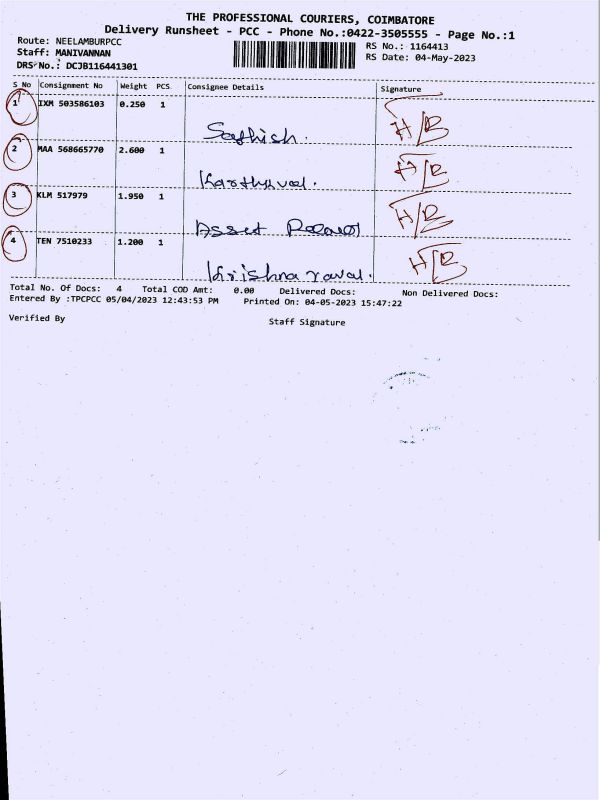 THE PROFESSIONAL COURIERS, COIMBATORE
Delivery Runsheet - PCC - Phone No.:0422-3505555 - Page No.:1
Route: NEELAMBURPCC
RS No.: 1164413
Staff: MANIVANNAN
RS Date: 04-May-2023
DRS No.: DCJB116441301
S No Consignment No Weight PCS Consignee Details Signature
1 IXM 503586103 0.250 1
Sathish. H/B
2 MAA 568665770 2.600 1
H/B
3 KLM 517979 1.950 1
Asset H/B
4 TEN 7510233 1.200 1
H/B
Total No. Of Docs: 4 Total COD Amt: 0.00 Delivered Docs: Non Delivered Docs:
Entered By :TPCPCC 05/04/2023 12:43:53 PM Printed On: 04-05-2023 15:47:22
Verified By Staff Signature